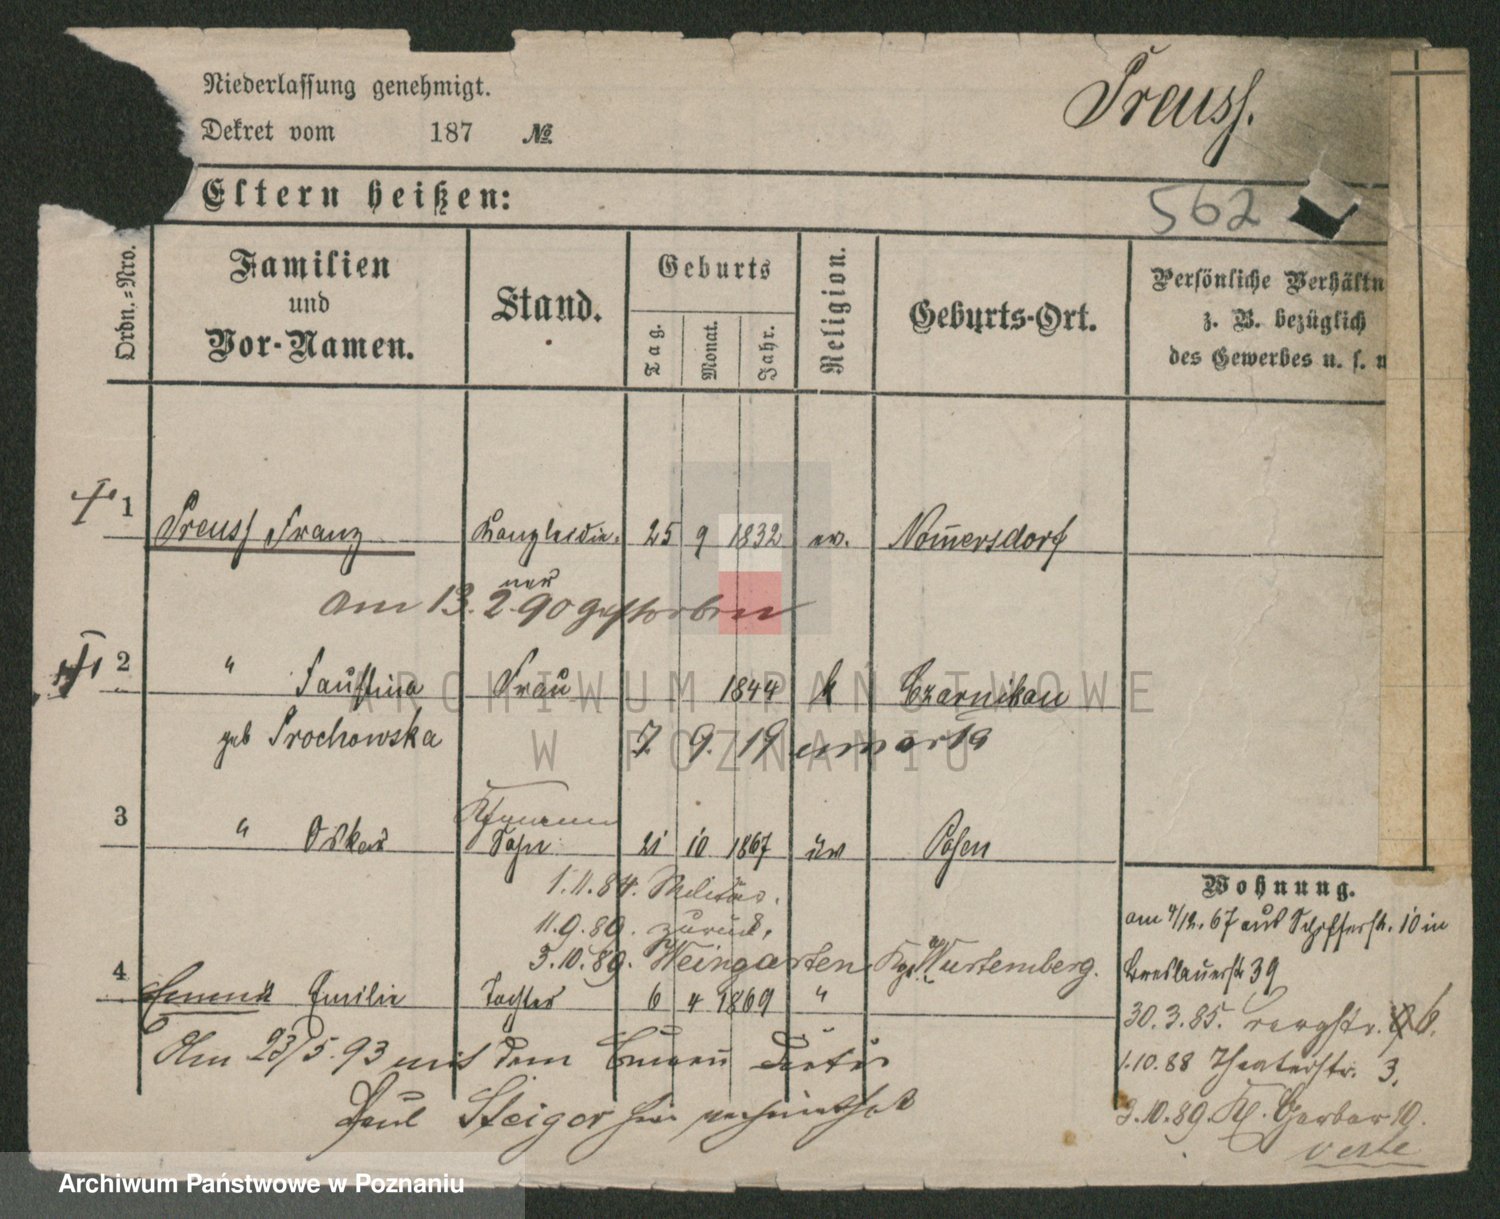 Niederlassung genehmigt.
Preuss.
Dekret vom 187 No
Eltern heißen:
562
Ordn.=Nro.
Familien
und
Vor-Namen.
Stand.
Geburts
Tag.
Monat.
Jahr.
Religion.
Geburts-Ort.
Persönliche Verhältn
z. B. bezüglich
des Gewerbes u. s. w
1 Preuss Franz Kanzleidie. 25 9 1832 ev. Nom̄ersdorf
am 13. 2. 90 gestorben
2 " Faustina Frau 1844 k Czarnikau
geb Prochowska 7. 9. 19
3 " Oskar Sohn 21 10 1867 ev Posen
1.11.84. Militär.
11.9.89. zurück.
3.10.89. Weingarten Kgr. Wurtemberg.
4 Emilie Tochter 6 4 1869 "
Am 23/5.93 mit dem
Paul Steiger hier verheirathet
Wohnung.
am 4/12. 67 aus 10 in
Breslauerstr 39
30.3.85. Bergstr. 6.
1.10.88 Theaterstr. 3.
3.10.89. Kl. Gerber 10.
verte
ARCHIWUM PAŃSTWOWE
W POZNANIU
Archiwum Państwowe w Poznaniu